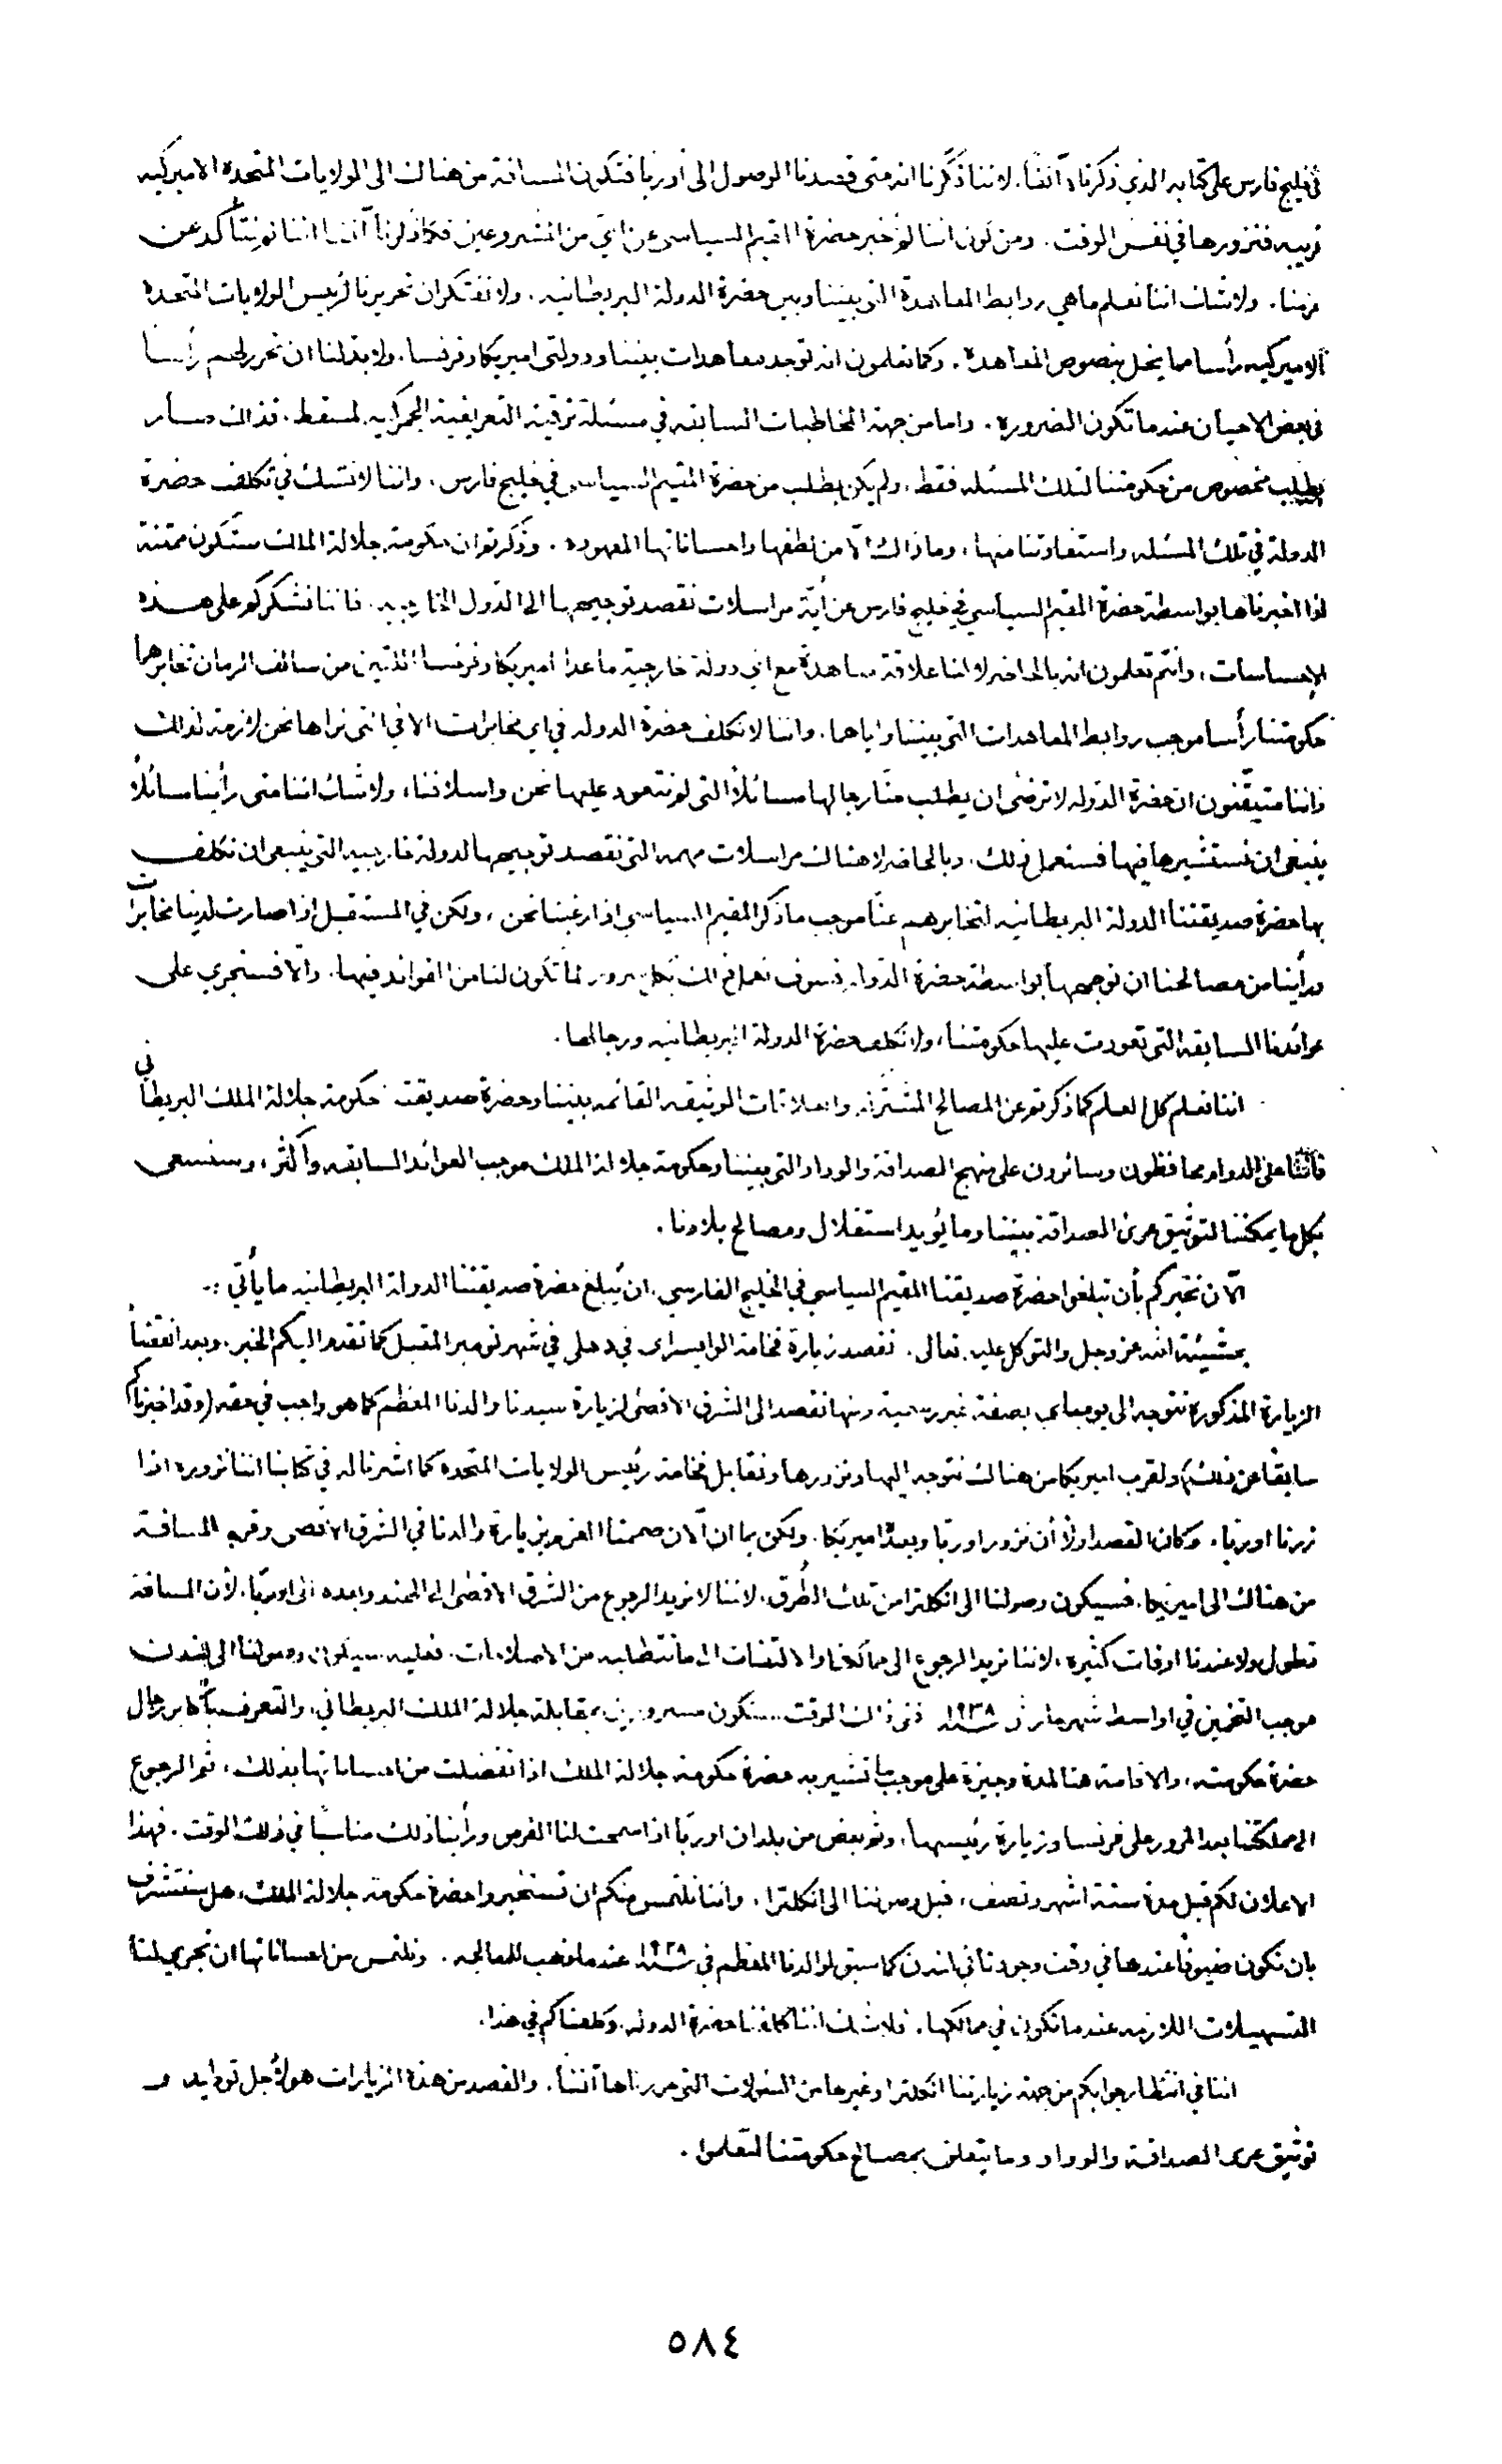 في خليج فارس على كتابه الذي ذكرناه آنفاً. لاننا ذكّرنا انه متى قصدنا الوصول الى أوربا فتكون المسافة من هنالك الى الولايات المتحدة الاميركيه
قريبه فنزورها في نفس الوقت. ومن كون اننا لم نخبر حضرة المقيم السياسى عن أيّ من المشروعين فكما ذكرنا آنفا اننا لم نتأكد عن
عزمنا. ولا شك اننا نعلم ما هي روابط المعاهدة التى بيننا وبين حضرة الدولة البريطانيه. ولا نفتكر ان تحريرنا لرئيس الولايات المتحده
الاميركيه رأسا مما يخل بنصوص المعاهده. وكما تعلمون انه توجد معاهدات بيننا ودولتي اميركا وفرنسا. ولا بد لنا ان نحرر لهم رأسا
في بعض الاحيان عندما تكون الضروره. واما من جهة المخاطبات السابقه في مسئلة ترقية التعريفية الجمركيه لمسقط. فذلك صار
بطلب مخصوص من حكومتنا لتلك المسئله فقط، ولم يكن بطلب من حضرة المقيم السياسى في خليج فارس، واننا لا نشك في تكلف حضرة
الدولة في تلك المسئله واستفادتنا منها، وما ذاك الّا من لطفها واحساناتها المعهوده. وذكرتم ان حكومة جلالة الملك ستكون ممتنة
لو اخبرناها بواسطة حضرة المقيم السياسي في خليج فارس عن أيّة مراسلات نقصد توجيهها الى الدول الخارجيه. فاننا نشكركم على هذه
الإحساسات، وانتم تعلمون انه بالحاضر لا لنا علاقة معاهدة مع اي دولة خارجية ما عدا اميركا وفرنسا اللتين من سالف الزمان تخابرهما
حكومتنا رأسا موجب روابط المعاهدات التى بيننا واياهما. واننا لا نكلف حضرة الدوله في اي مخابرات الا في التى نراها نحن لازمة لذلك
واننا متيقّنون ان حضرة الدوله لا ترضى ان يطلب منّا رجالها مسائلاً التى لم نتعود عليها نحن واسلافنا، ولا شك اننا متى رأينا مسائلاً
ينبغي ان نستشيرها فيها فسنعمل ذلك. وبالحاضر لا هناك مراسلات مهمه التى نقصد توجيهها لدولة خارجيه التى ينبغي ان نكلف
بها حضرة صديقتنا الدولة البريطانيه لتخابرهم عنّا موجب ما ذكر المقيم السياسي اذا رغبنا نحن، ولكن في المستقبل اذا صارت لدينا مخابرات
ورأينا من مصالحنا ان نوجهها بواسطة حضرة الدولة فسوف نعمل ذلك بكل سرور لما تكون لنا من الفوائد فيها. والّا فسنجري على
عوائدنا السابقه التى تعودت عليها حكومتنا، ولا نكلف حضرة الدولة البريطانيه ورجالها.
اننا نعلم كل العلم كما ذكرتم عن المصالح المشتركه والعلاقات الوثيقه القائمه بيننا وحضرة صديقتنا حكومة جلالة الملك البريطاني
فاننا على الدوام محافظون وسائرون على منهج الصداقة والوداد التى بيننا وحكومة جلالة الملك موجب العوائد السابقه وأكثر، وسنسعى
بكل ما يمكننا لتوثيق عرى الصداقة بيننا وما يؤيد استقلال ومصالح بلادنا.
الآن نخبركم بأن تبلغوا حضرة صديقنا المقيم السياسي في الخليج الفارسي. ان يبلغ حضرة صديقتنا الدولة البريطانيه ما يأتي :-
بمشيئة الله عز وجل والتوكل عليه تعالى. نقصد زيارة فخامة الوايسراى في دهلي في شهر نومبر المقبل كما تقدم اليكم الخبر. وبعد انقضأ
الزيارة المذكورة نتوجه الى بومباى بصفة غير رسمية ومنها نقصد الى الشرق الاقصى لزيارة سيدنا والدنا المعظم كما هو واجب في حقه (وقد اخبرناكم
سابقا عن ذلك) ولقرب اميركا من هنالك نتوجه اليها ونزورها ونقابل فخامة رئيس الولايات المتحده كما اشرنا له في كتابنا اننا نزوره اذا
زرنا اوربا. وكان القصد اولاً أن نزور اوربا وبعده اميركا. ولكن بما ان الآن صممنا العزم بزيارة والدنا في الشرق الاقصى وقرب المسافة
من هناك الى اميركا. فسيكون وصولنا الى انكلترا من تلك الطُرق. لاننا لا نريد الرجوع من الشرق الاقصى الى الهند وبعده الى اوربا. لأن المسافة
تطول ولا عندنا اوقات كثيره، لاننا نريد الرجوع الى مملكتنا والالتفات الى ما تتطلبه من الاصلاحات. فعليه سيكون وصولنا الى لندن
موجب التخمين في اواسط شهر مارش سنة ١٩٣٨ ففي ذلك الوقت سنكون مسرورين بمقابلة جلالة الملك البريطاني، والتعرف بأكابر رجال
حضرة حكومته، والاقامة هنا لمدة وجيزة على موجب ما تشير به حضرة حكومة جلالة الملك اذا تفضلت من احساناتها بذلك، ثم الرجوع
الى مملكتنا بعد المرور على فرنسا وزيارة رئيسها، وثم بعض من بلدان اوربا اذا سمحت لنا الفرص ورأينا ذلك مناسبًا في ذلك الوقت. فهذا
الاعلان لكم قبل مدة ستة اشهر ونصف، قبل وصولنا الى انكلترا. واننا نلتمس منكم ان تستخبروا حضرة حكومة جلالة الملك، هل سنتشرف
بان نكون ضيوفًا عندها في وقت وجودنا في لندن كما سبق لوالدنا المعظم في سنة ١٩٢٨ عندما ذهب للمعالجه. ونلتمس من احساناتها ان تجري لنا
التسهيلات اللازمه عندما نكون في ممالكها. فلا شك اننا كلفنا حضرة الدوله وكلفناكم في هذا.
اننا في انتظار جوابكم من جهة زيارتنا انكلترا وغيرها من السئولات التى حررناها آنفاً. والقصد من هذه الزيارات هو لأجل توطيد و
توثيق عرى الصداقة والوداد وما يتعلق بمصالح حكومتنا لتعلموا.
٥٨٤